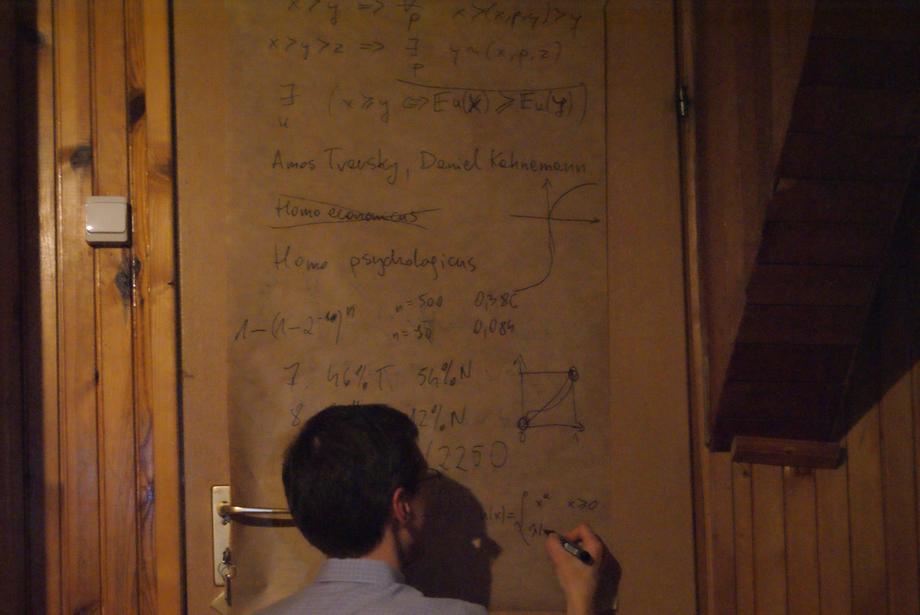 x>y => ∀p x>(x,p,y)>y
x>y>z => ∃p y~(x,p,z)
∃u (x≽y <=> Eu(x) ≥ Eu(y))
Amos Tversky, Daniel Kahnemann
Homo economicus
Homo psychologicus
1-(1-2^-10)^n n=500 0,386
n=90 0,084
7. 46% T 54% N
8 2% N
2250
(x)= { x^α x≥0